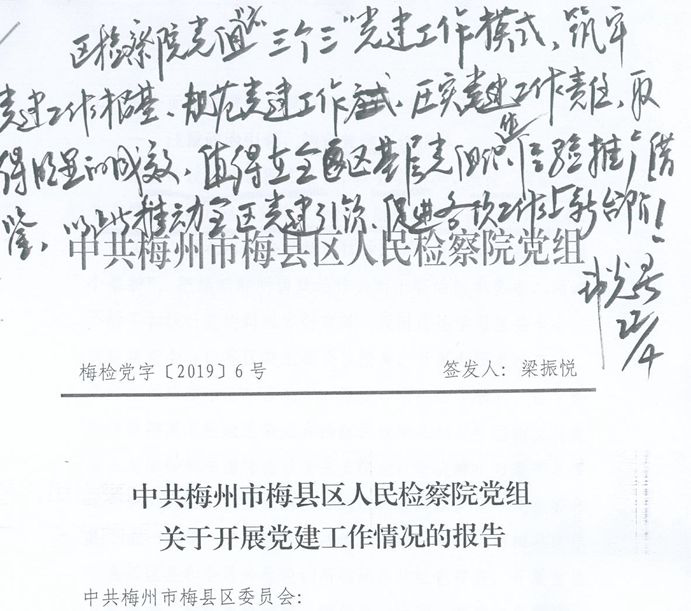 区检察院党组“三个三”党建工作模式,筑牢
党建工作根基、规范党建工作、压实党建工作责任,取
得明显的成效,值得在全区基层党组织作经验推广借
鉴,以此推动全区党建引领、促进各项工作上新台阶!
22/4
中共梅州市梅县区人民检察院党组
梅检党字〔2019〕6号 签发人:梁振悦
中共梅州市梅县区人民检察院党组
关于开展党建工作情况的报告
中共梅州市梅县区委员会: